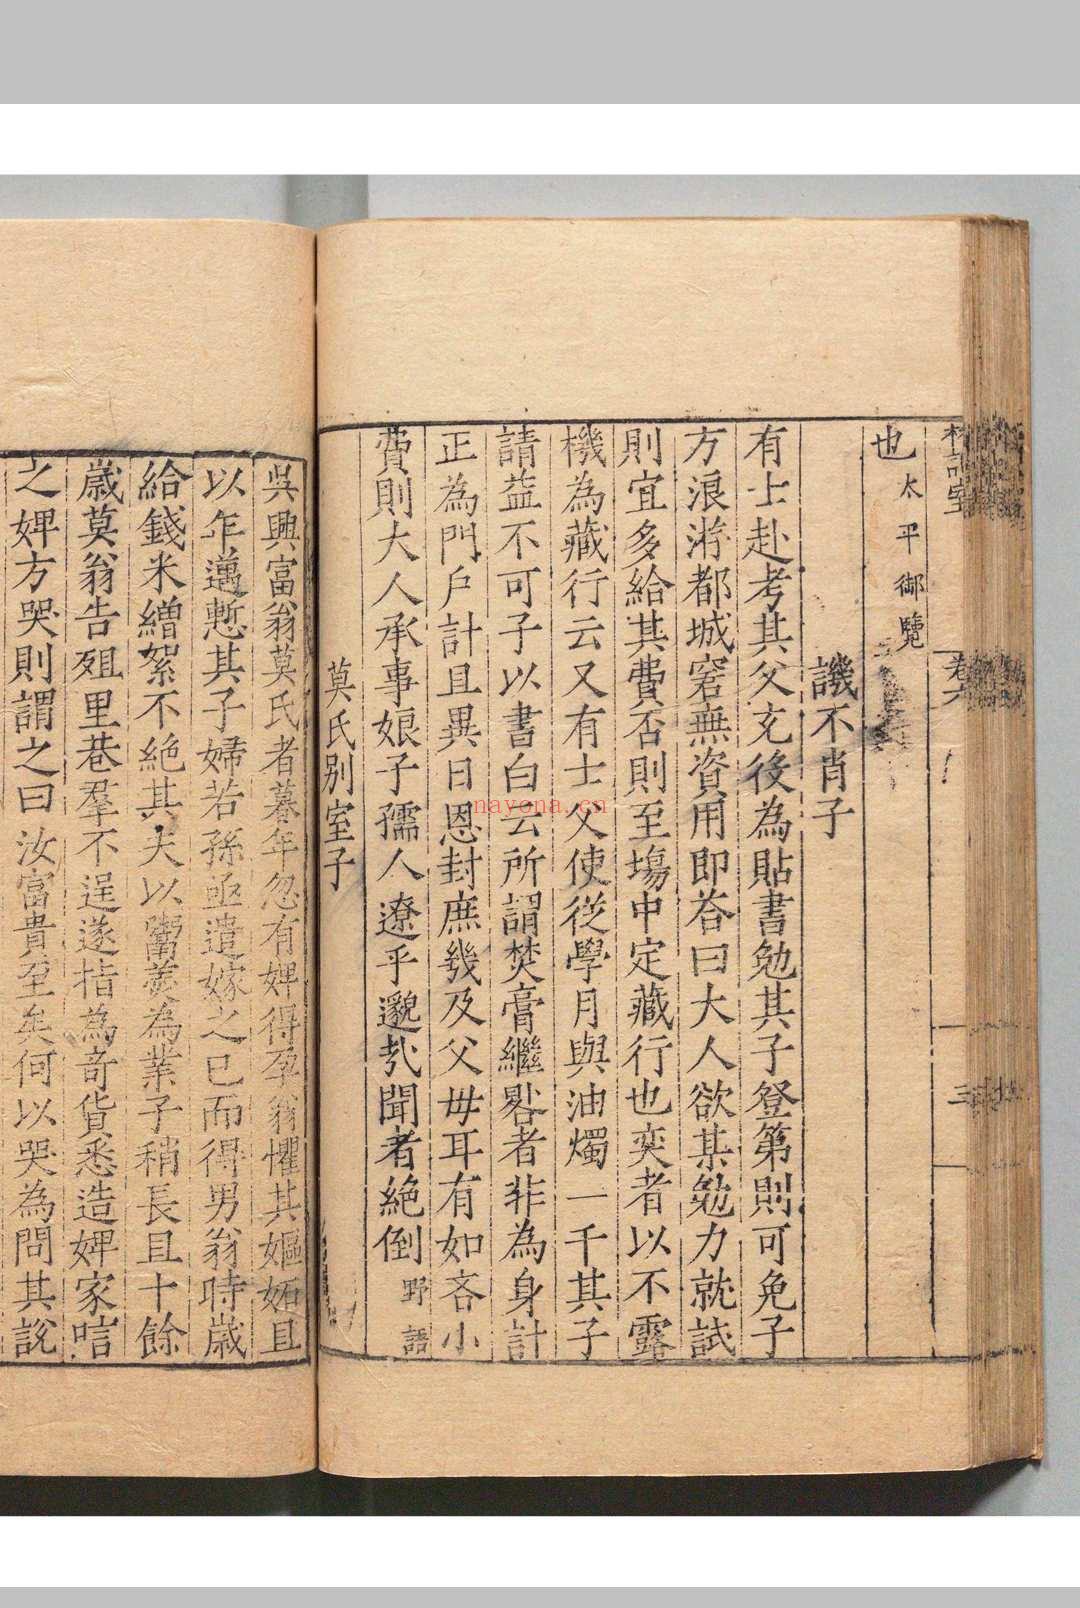 也 太平御覽
譏不肖子
有士赴考其父充役為貼書勉其子登第則可免子
方浪游都城窘無資用即答曰大人欲某勉力就試
則宜多給其費否則至場中定藏行也奕者以不露
機為藏行云又有士父使從學月與油燭一千其子
請益不可子以書白云所謂焚膏繼晷者非為身計
正為門戶計且異日恩封庶幾及父母耳有如吝小
費則大人承事娘子孺人遼乎邈哉聞者絕倒 野語
莫氏別室子
吳興富翁莫氏者暮年忽有婢得孕翁懼其嫗妬且
以年邁慙其子婦若孫亟遣嫁之已而得男翁時歲
給錢米繒絮不絕其夫以鬻羹為業子稍長且十餘
歲莫翁告殂里巷羣不逞遂指為奇貨悉造婢家唁
之婢方哭則謂之曰汝富貴至矣何以哭為問其說
卷六
三
nayona.cn